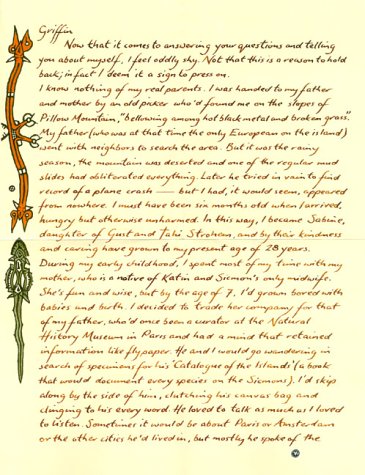 Griffin
Now that it comes to answering your questions and telling
you about myself, I feel oddly shy. Not that this is a reason to hold
back; in fact I deem it a sign to press on.
I know nothing of my real parents. I was handed to my father
and mother by an old picker who'd found me on the slopes of
Pillow Mountain, "bellowing among hot black metal and broken grass."
My father (who was at that time the only European on the island)
went with neighbors to search the area. But it was the rainy
season, the mountain was deserted and one of the regular mud
slides had obliterated everything. Later he tried in vain to find
record of a plane crash — but I had, it would seem, appeared
from nowhere. I must have been six months old when I arrived,
hungry but otherwise unharmed. In this way, I became Sabine,
daughter of Gust and Tahi Strohem, and by their kindness
and caring have grown to my present age of 28 years.
During my early childhood, I spent most of my time with my
mother, who is a native of Katin and Sicmon's only midwife.
She's fun and wise, but by the age of 7, I'd grown bored with
babies and birth. I decided to trade her company for that
of my father, who'd once been a curator at the Natural
History Museum in Paris and had a mind that retained
information like flypaper. He and I would go wandering in
search of specimens for his 'Catalogue of the Islands' (a book
that would document every species on the Sicmons). I'd skip
along by the side of him, clutching his canvas bag and
clinging to his every word. He loved to talk as much as I loved
to listen. Sometimes it would be about Paris or Amsterdam
or the other cities he'd lived in, but mostly he spoke of the